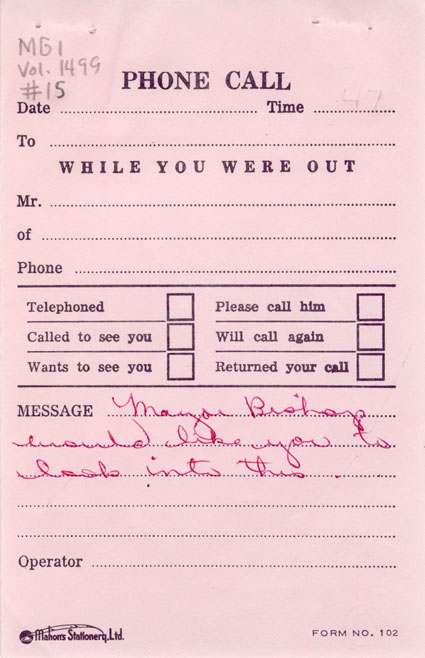 MG1
Vol. 1499
#15
PHONE CALL
Date Time 47
To
WHILE YOU WERE OUT
Mr.
of
Phone
Telephoned Please call him
Called to see you Will call again
Wants to see you Returned your call
MESSAGE Mayor Bishop
would like you to
look into this.
Operator
Mahon's Stationery, Ltd. FORM NO. 102